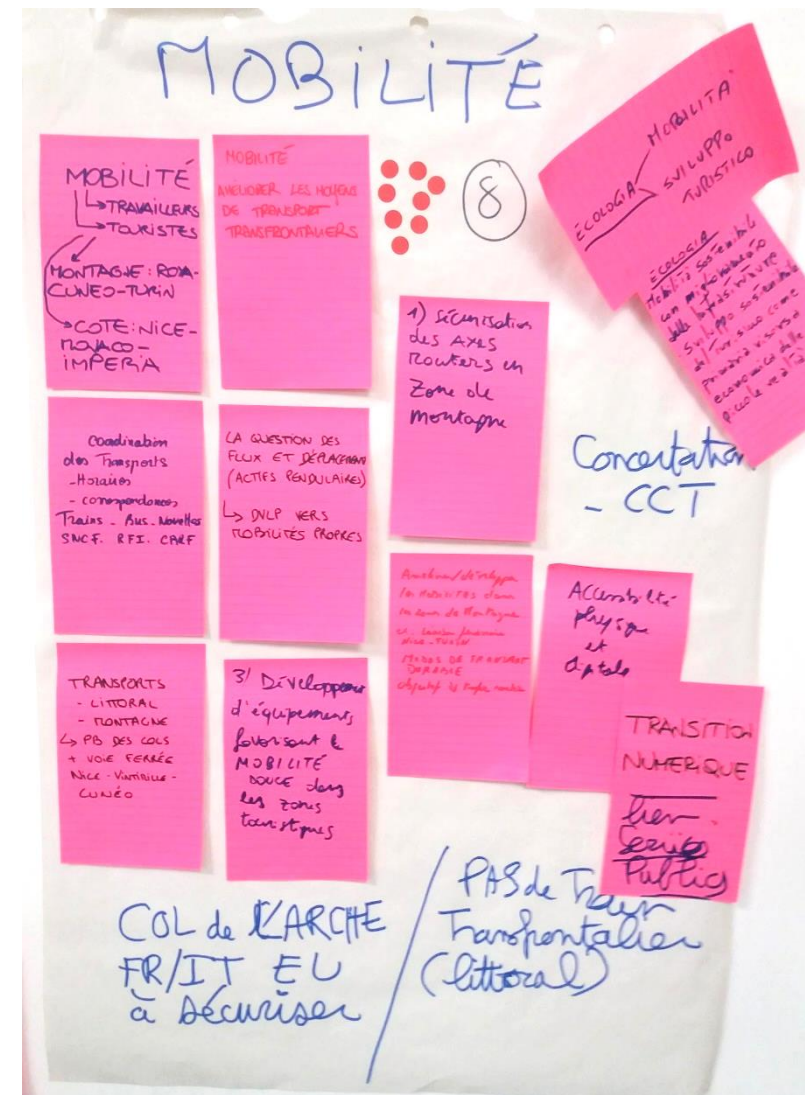 MOBiLiTÉ
MOBiLiTÉ
↳ TRAVAILLEURS
↳ TOURISTES
MONTAGNE: ROYA-
CUNEO-TURIN
→ COTE: NICE-
MONACO-
iMPERiA
MOBILITÉ
AMÉLIORER LES MOYENS
DE TRANSPORT
TRANSFRONTALIERS
8
ECOLOGIA
MOBILITA'
SVILUPPO
TURISTICO
ECOLOGIA
Mobilità sostenibile
con miglioramento
delle infrastrutture
Sviluppo sostenibile
del turismo come
primaria risorsa
economica delle
piccole realtà
1) Sécurisation
des Axes
Routiers en
Zone de
montagne
Coordination
des Transports
- Horaires
- correspondances
Trains - Bus - Navettes
SNCF. RFI. CARF
LA QUESTION DES
FLUX ET DÉPLACEMENT
(ACTIFS PENDULAIRES)
↳ DVLP VERS
MOBILITÉS PROPRES
Concertation
- CCT
Améliorer/développer
les mobilités dans
les zones de Montagne
liaison ferroviaire
Nice-TURIN
MODES DE TRANSPORT
DURABLE
Accessibilité
physique
et
digitale
TRANSPORTS
- LITTORAL
- MONTAGNE
↳ PB DES COLS
+ VOIE FERRÉE
Nice - Vintimille -
CUNÉO
3/ Développement
d'équipements
favorisant la
MOBILITÉ
DOUCE dans
les zones
touristiques
TRANSITION
NUMERIQUE
lien
Services
Publics
COL de L'ARCHE
FR/IT EU
à sécuriser
PAS de Train
Transfrontalier
(littoral)